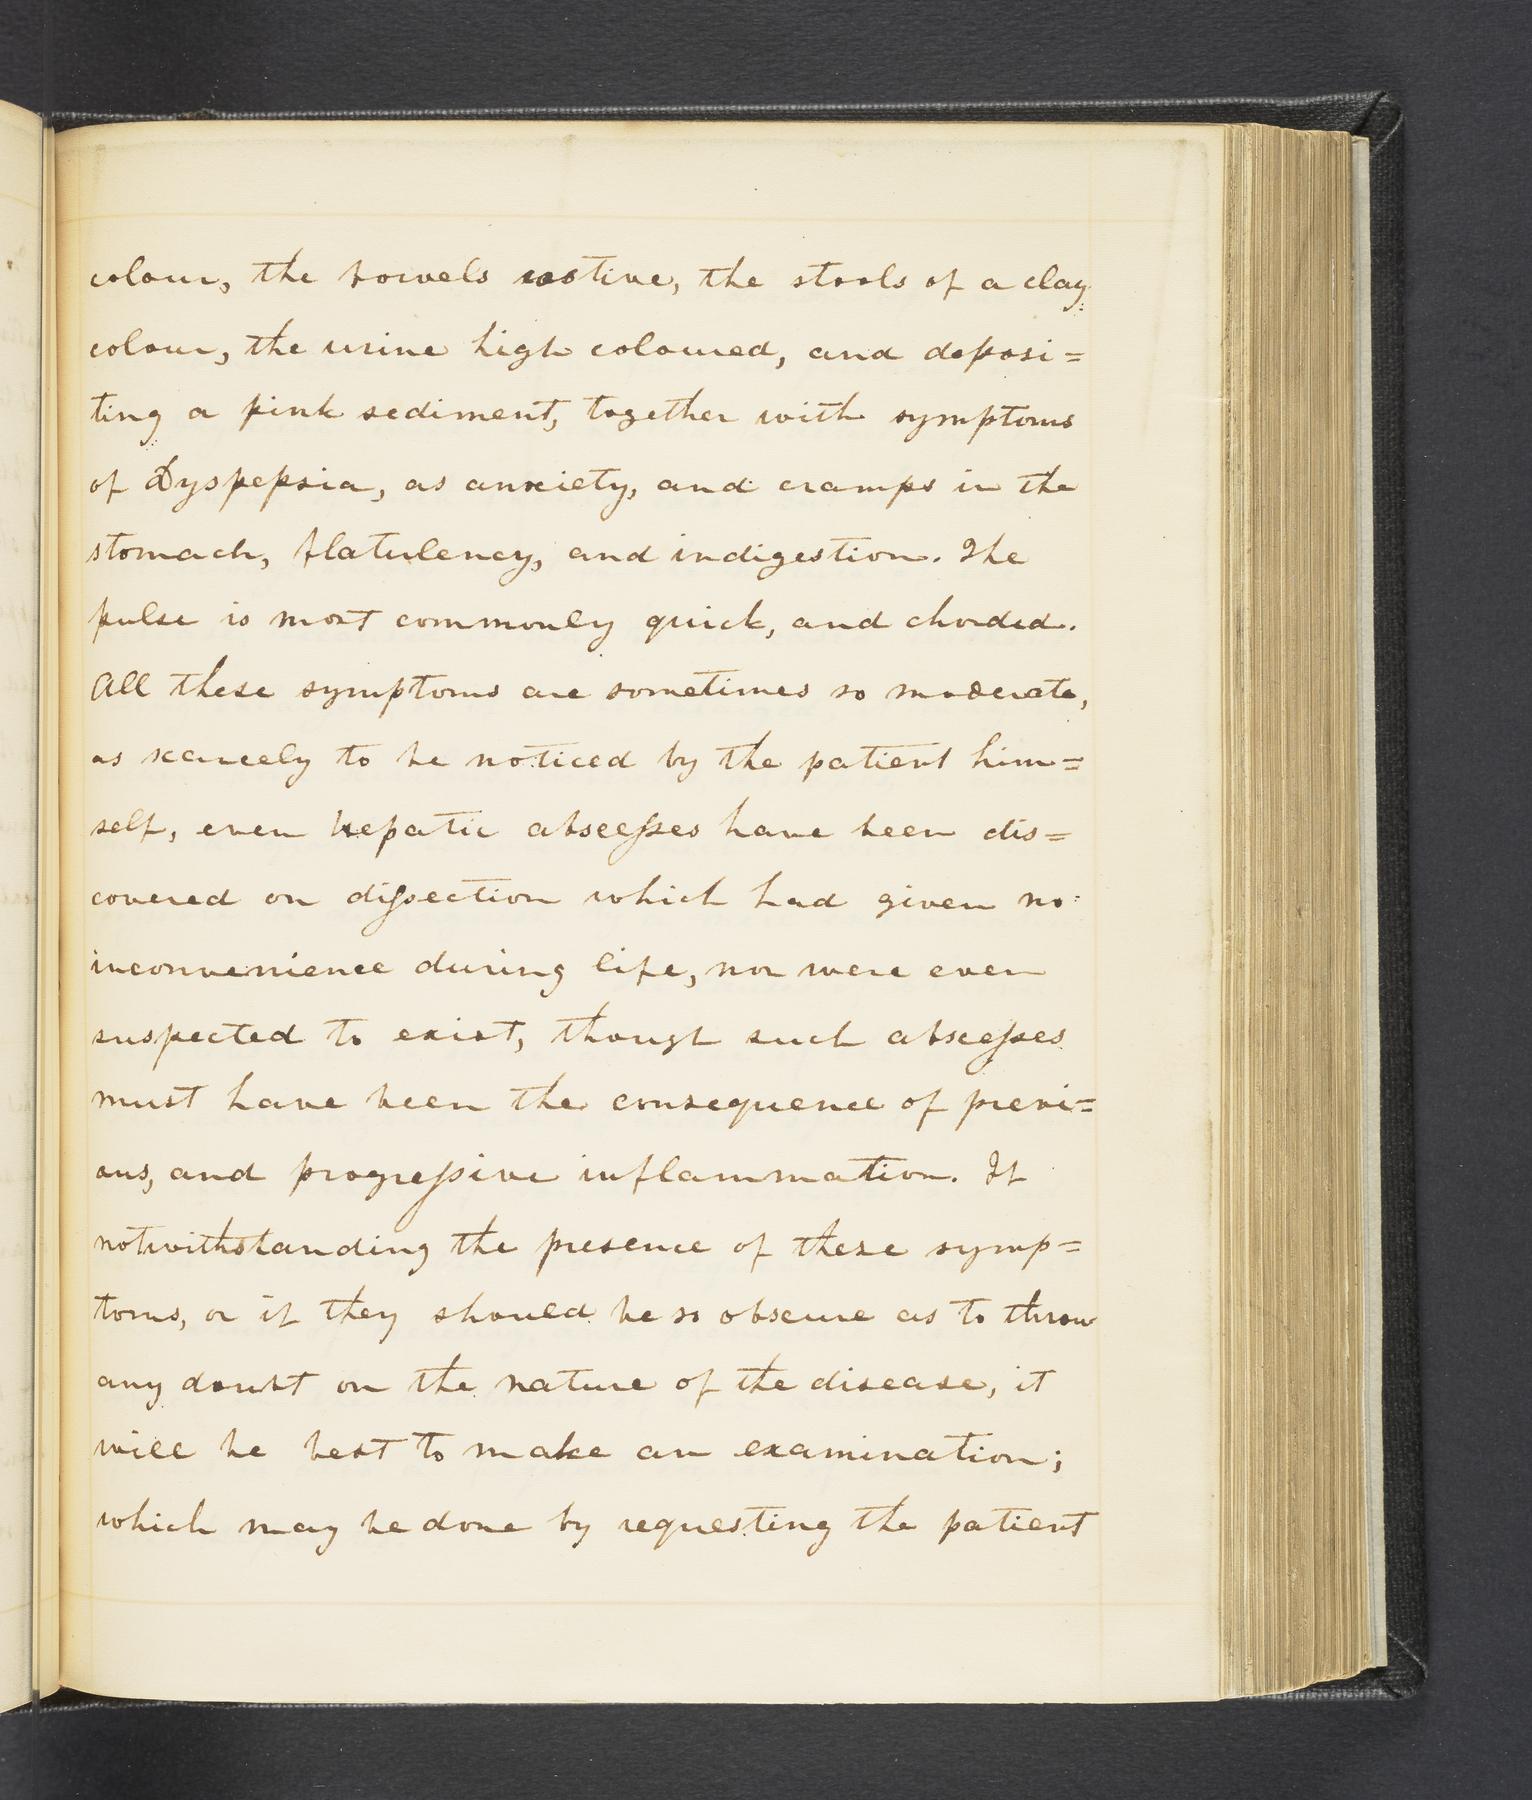 colour, the bowels costive, the stools of a clay
colour, the urine high coloured, and deposi=
ting a pink sediment, together with symptoms
of Dyspepsia, as anxiety, and cramps in the
stomach, flatulency, and indigestion. The
pulse is most commonly quick, and chorded.
All these symptoms are sometimes so moderate,
as scarcely to be noticed by the patient him=
self, even hepatic abscesses have been dis=
covered on dissection which had given no
inconvenience during life, nor were even
suspected to exist, though such abscesses
must have been the consequence of previ=
ous, and progressive inflammation. If
notwithstanding the presence of these symp=
toms, or if they should be so obscure as to throw
any doubt on the nature of the disease, it
will be best to make an examination;
which may be done by requesting the patient